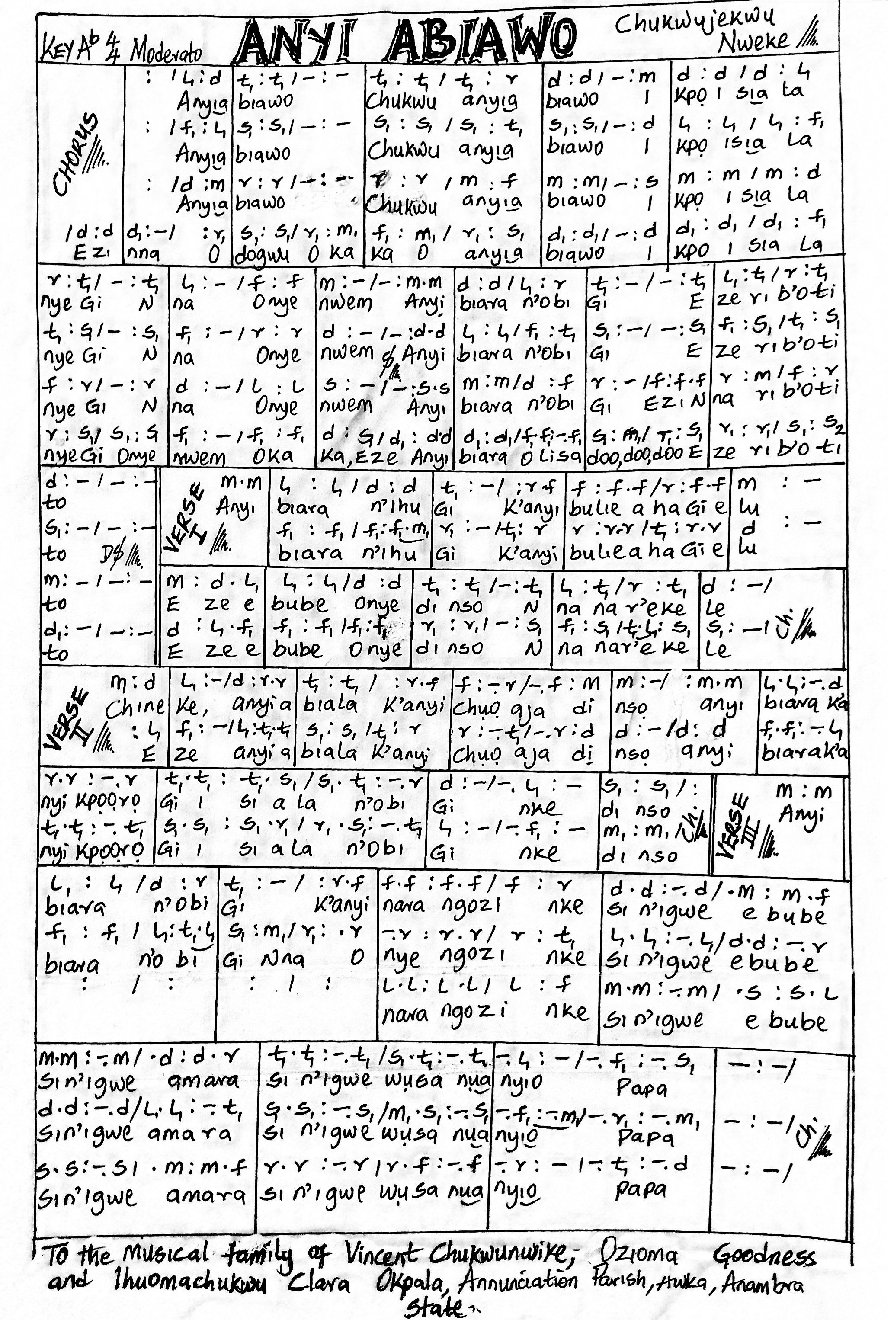 KEY Aᵇ 4/4 Moderato ANYI ABIAWO Chukwujekwu Nweke
CHORUS
: / l₁ : d | t₁ : t₁ / – : – | t₁ : t₁ / t₁ : r | d : d / – : m | d : d / d : l₁
Anyịa | biawo | Chukwu anyịa | biawo I | kpọ I sịa ta
: / f₁ : l₁ | s₁ : s₁ / – : – | s₁ : s₁ / s₁ : t₁ | s₁ : s₁ / – : d | l₁ : l₁ / l₁ : f₁
Anyịa | biawo | Chukwu anyịa | biawo I | kpọ I sịa La
: / d : m | r : r / – : – | r : r / m : f | m : m / – : s | m : m / m : d
Anyịa | biawo | Chukwu anyịa | biawo I | kpọ I sịa La
/ d : d | d₁ : – / : r₁ | s₁ : s₁ / r₁ : m₁ | f₁ : m₁ / r₁ : s₁ | d₁ : d₁ / – : d | d₁ : d₁ / d₁ : f₁
Ezi | nna O | dogwu O ka | ka O anyịa | biawo I | kpọ I sia La
r : t₁ / – : t₁ | l₁ : – / f : f | m : – / – : m.m | d : d / l₁ : r | t₁ : – / – : t₁ | l₁ : t₁ / r : t₁
nye Gi N | na Onye | nwem Anyi | biara n'obi | Gi E | ze ri b'oti
t₁ : s₁ / – : s₁ | f₁ : – / r : r | d : – / – : d.d | l₁ : l₁ / f₁ : t₁ | s₁ : – / – : s₁ | f₁ : s₁ / t₁ : s₁
nye Gi N | na Onye | nwem Anyi | biara n'obi | Gi E | ze ri b'oti
f : r / – : r | d : – / l : l | s : – / – : s.s | m : m / d : f | r : – / f : f.f | r : m / f : r
nye Gi N | na Onye | nwem Anyi | biara n'obi | Gi Ezi N | na ri b'oti
r : s₁ / s₁ : s | f₁ : – / f₁ : f₁ | d : s₁ / d₁ : d.d | d₁ : d₁ / f₁.f₁ : –.f₁ | s₁ : m₁ / r₁ : s₁ | r₁ : r₁ / s₁ : s₂
nye Gi Onye | nwem Oka | Ka, Eze Anyi | biara Olisa | doo, doo, doo E | ze ri b'oti
d : – / – : –
to
s₁ : – / – : –
to D$
m : – / – : –
to
d₁ : – / – : –
to
VERSE I
m.m | l₁ : l₁ / d : d | t₁ : – / : r.f | f : f.f / r : f.f | m : –
Anyi | biara n'ihu | Gi K'anyi | bulie aha Gi e | lu
f₁ : f₁ / f₁ : f₁.m₁ | r₁ : – / t₁ : r | r : r.r / t₁ : r.r | d : –
biara n'ihu | Gi K'anyi | bulie aha Gi e | lu
m : d.l₁ | l₁ : l₁ / d : d | t₁ : t₁ / – : t₁ | l₁ : t₁ / r : t₁ | d : – /
E ze e | bube Onye | di nso N | na na r'eke | Le
d : l₁.f₁ | f₁ : f₁ / f₁ : f₁ | r₁ : r₁ / – : s₁ | f₁ : s₁ / t₁.l₁ : s₁ | s₁ : – / Ch.
E ze e | bube Onye | di nso N | na nar'e ke | Le
VERSE II
m : d | l₁ : – / d : r.r | t₁ : t₁ / : r.f | f : –.r / –.f : m | m : – / : m.m | l₁.l₁ : –.d
Chine | ke, anyi a | biala K'anyi | Chụọ aja di | nsọ anyi | biara ka
: l₁ | f₁ : – / l₁ : t₁.t₁ | s₁ : s₁ / t₁ : r | r : –.t₁ / –.r : d | d : – / d : d | f₁.f₁ : –.l₁
E | ze anyi a | biala K'anyi | Chụọ aja dị | nsọ anyi | biara ka
r.r : –.r | t₁.t₁ : t₁.s₁ / s₁.t₁ : –.r | d : – / –.l₁ : – | s₁ : s₁ / :
nyi Kpọọrọ | Gi I si a la n'obi | Gi nke | di nso
t₁.t₁ : –.t₁ | s₁.s₁ : s₁.r₁ / r₁.s₁ : –.t₁ | l₁ : – / –.f₁ : – | m₁ : m₁ / Ch.
nyi Kpọọrọ | Gi I si a la n'Obi | Gi nke | di nso
VERSE III
m : m
Anyi
l₁ : l₁ / d : r | t₁ : – / : r.f | f.f : f.f / f : r | d.d : –.d / .m : m.f
biara n'obi | Gi K'anyi | nara ngozi nke | si n'igwe e bube
f₁ : f₁ / l₁ : t₁.l₁ | s₁ : m₁ / r₁ : .r | –.r : r.r / r : t₁ | l₁.l₁ : –.l₁ / d.d : –.r
biara n'o bi | Gi Nna O | nye ngozi nke | si n'igwe ebube
: / : | : / : | l.l : l.l / l : f | m.m : –.m / .s : s.l
nara ngozi nke | si n'igwe e bube
m.m : –.m / .d : d.r | t₁.t₁ : –.t₁ / s₁.t₁ : –.t₁ | –.l₁ : – / –.f₁ : –.s₁ | – : – /
si n'igwe amara | si n'igwe wụsa nụa | nyịọ Papa
d.d : –.d / l₁.l₁ : –.t₁ | s₁.s₁ : –.s₁ / m₁.s₁ : –.s₁ | –.f₁ : –.m₁ / –.r₁ : –.m₁ | – : – / Ch.
si n'igwe amara | si n'igwe wụsa nụa | nyịọ Papa
s.s : –.s / .m : m.f | r.r : –.r / r.f : –.f | –.r : – / –.t₁ : –.d | – : – /
si n'igwe amara | si n'igwe wụsa nụa | nyịọ papa
To the Musical family of Vincent Chukwunwike, Ozioma Goodness
and Ihuomachukwu Clara Okpala, Annunciation Parish, Awka, Anambra
State.